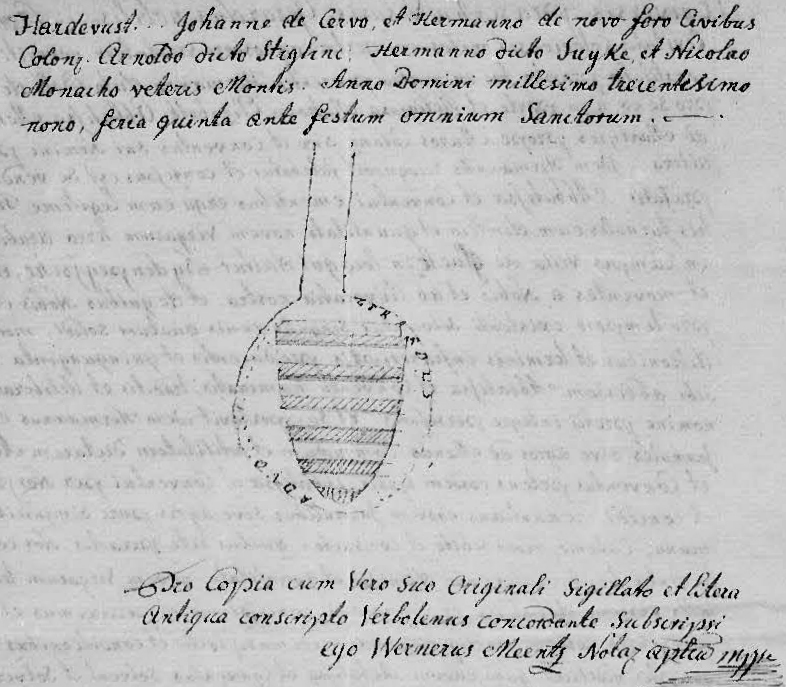 Hardevust... Johanne de Cervo, et Hermanno de novo foro Civibus
Colon. Arnoldo dicto Stiglinc, Hermanno dicto Suyke, et Nicolao
Monacho veteris Montis. Anno Domini millesimo trecentesimo
nono, feria quinta ante festum omnium Sanctorum.
Pro Copia cum Vero suo Originali Sigillato et litera
Antiqua conscripto Verbotenus concordante Subscripsi
ego Wernerus Meentz Notar